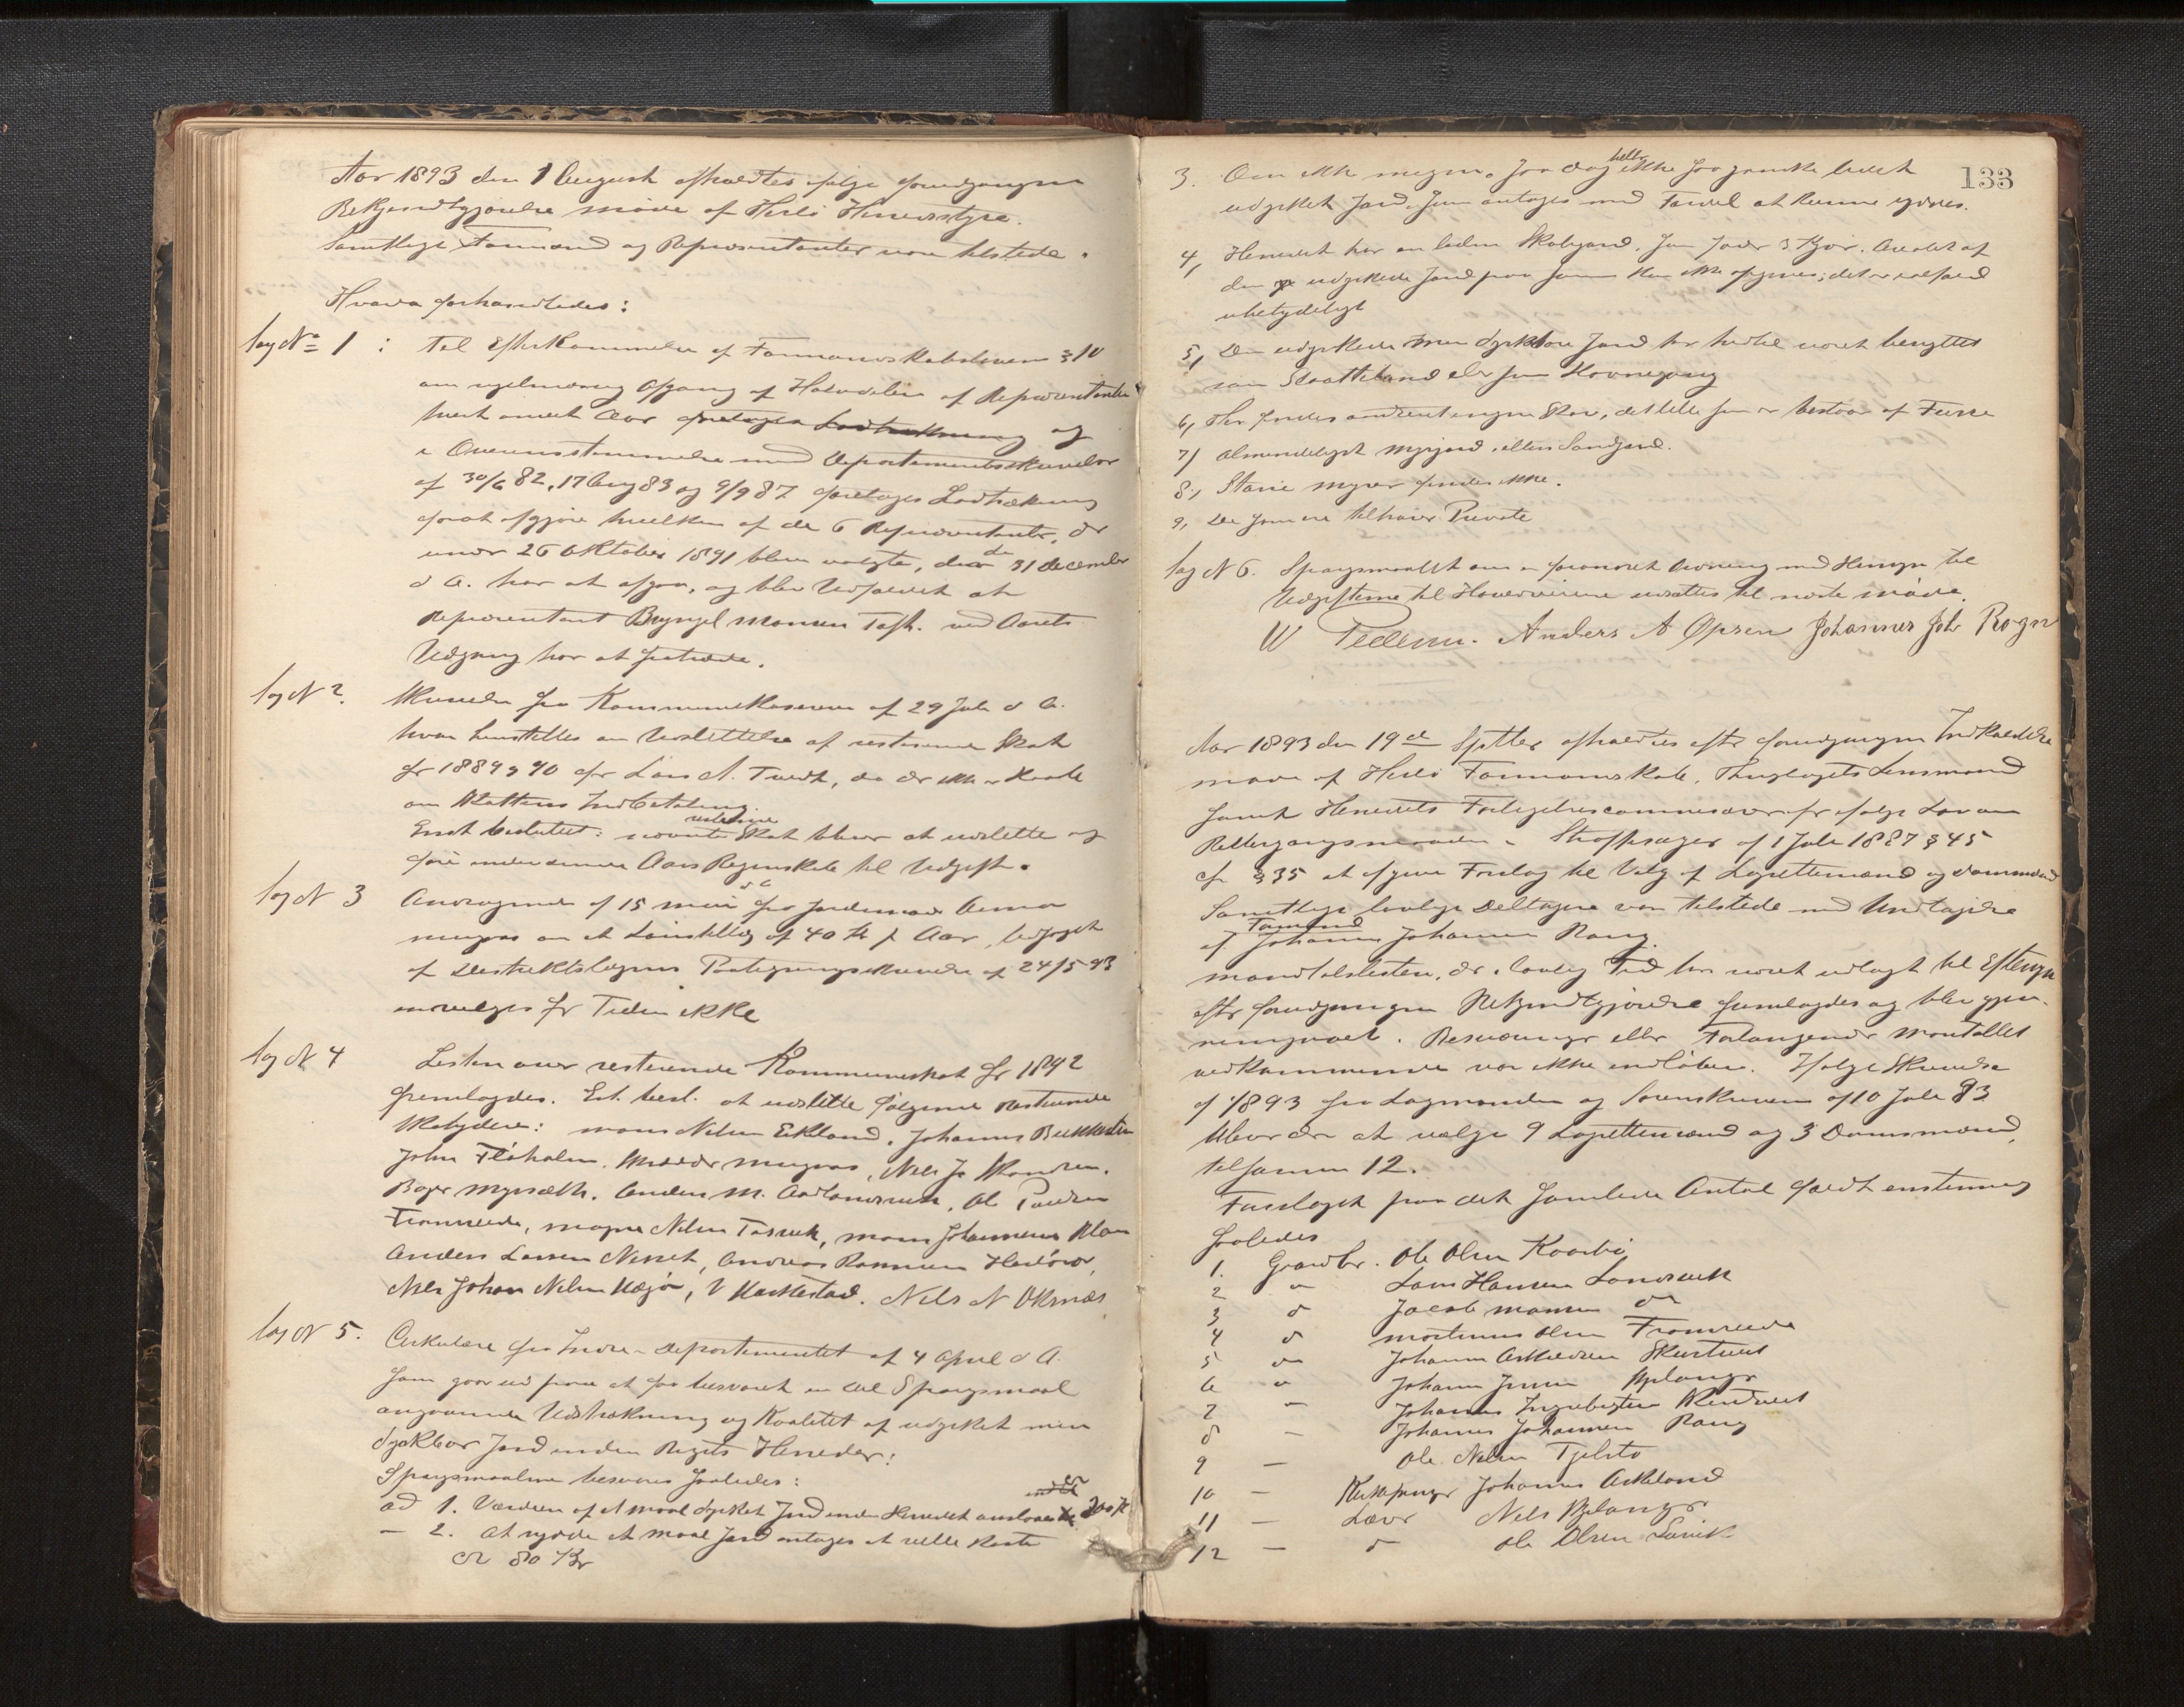 Aar 1893 den 1 August afholdtes ifølge forudgangen
Bekjendtgjørelse møde af Herlø Herredsstyre.
Samtlige Formænd og Repræsentanter vare tilstede.
Hvorda forhandledes:
Sag No 1 : Til Efterkommelse af Formandskabslovens § 10
om regelmæssig Afgang af Halvdelen af Repræsentanter
hvert andet Aar foretages Lodtrækning og
i Overensstemmelse med Departementsskrivelser
af 30/6 82, 17 Aug 83 og 9/9 87 foretages Lodtrækning
forat afgjøre hvilken af de 6 Repræsentanter, der
under 26 Oktober 1891 blev valgte, der den 31 December
d A. har at afgaa, og blev Udfaldet at
Repræsentant Bryngel Monsen Toft. ved Aarets
Udgang har at fratræde.
Sag N 2. Skrivelse fra Kommunekassereren af 29 Juli d A.
hvori henstilles om Udslettelse af resterende Skat
for 1889 & 90 for Lars N. Tvedt, da der ikke er Haab
om Skattens Indbetaling.
Enst besluttet: nævnte resterende Skat bliver at udslette og
føre under denne Aars Regnskab til Udgift.
Sag N 3 Andragende af 15 Mai d A fra Jordemoder Anna
Magnus om et Lønstillæg af 40 Kr pr Aar, ledsaget
af Distriktslægens Paategningsskrivelse af 24/5 93
indvilges for Tiden ikke
Sag N 4 Listen over resterende Kommuneskat for 1892
fremlagdes. Est. besl. at udslette følgende resterende
Skatydere: Mons Nilsen Ekland, Johannes Bukkesten
John Fløholm, Magnus, Nils Js
Anders M. Aadlandsvik, Ole Paulsen
Fromreide, Magne Nilsen Tosvik, Mons Johannesen
Anders Larsen Nesset, Andreas Rasmussen
Nils Johan Nilsen, Nils N Oknæs
Sag N 5. Cirkulære fra Indre-Departementet af 4 April d A.
som gaar ud paa at faa besvaret en del Spørgsmaal
angaaende Udstrækning og Kvalitet af udyrket men
dyrkbar Jord inden Rigets Herreder:
Spørgsmaalene besvares saaledes:
ad 1. Værdien af et Maal dyrket Jord inden Herredet ansloaes 200 Kr
— 2. At rydde et Maal Jord antages at ville koste
ca 80 Kr
133
3. Den ikke megen, saa dog heller ikke saa ganske lidet
udyrket Jord, som antages med Fordel at kunne ryddes.
4, Herredet har en liden Skolejord, som føder 3 Kjør. Arealet af
den udyrkede Jord paa samme kan ikke opgives; det er ialfald
ubetydeligt
5, Den udyrkede men dyrkbare Jord har hidtil været benyttet
som Slaatteland eller som Havnegang
6, Her findes omtrent ingen Skov, det lille som er bestaar af Furre
7) Almindeligst Myrjord, ellers Sandjord.
8., Større Myrer findes ikke.
9, De som ere tilhører Private
Sag N 6. Spørgsmaalet om en forandret Ordning med Hensyn til
Udgifterne til Hovedveiene udsattes til næste Møde.
W Pedersen. Anders A Opsen Johannes Joh Rogn
Aar 1893 den 19de Septbr afholdtes efter forudgangen Indkaldelse
møde af Herlø Formandskab, Thinglagets Lensmand
samt Herredets Forligelsescommissærer for ifølge Lov om
Rettergangsmaaden i Straffesager af 1 Juli 1887 § 45
cfr § 35 at afgive Forslag til Valg af Lagrettemænd og Domsmænd
Samtlige lovlige Deltagere var tilstede med Undtagelse
af Formand Johannes Johannesen Rong.
Mandtalslisten, der i lovlig Tid har været udlagt til Eftersyn
efter forudgangen Bekjendtgjørelse fremlagdes og blev gjen-
nemgaaet. Besværinger eller Forlangender Mantallet
vedkommende var ikke indløben. Ifølge Skrivelse
af 1893 fra Lagmanden og Sorenskriveren af 10 Juli 93
bliver der at vælge 9 Lagrettemænd og 3 Domsmænd,
tilsammen 12.
Forslaget paa det samlede Antal faldt enstemmig
saaledes
1. Gaardbr. Ole Olsen Kaarbø
2 " Lars Hansen Landsvik
3 d Jacob Monsen do
4 d Mortinus Olsen Fromreide
5 do Johannes Askildsen Skurtveit
6 " Johannes Jensen Bjelanger
7 — Johannes Ingebrigtsen
8 — Johannes Johannesen Rong
9 — Ole Nilsen Tjelsto
10 — Kirkesanger Johannes Askeland
11 — Lærer Nils Bjelanger
12 — d Ole Olsen Sævik